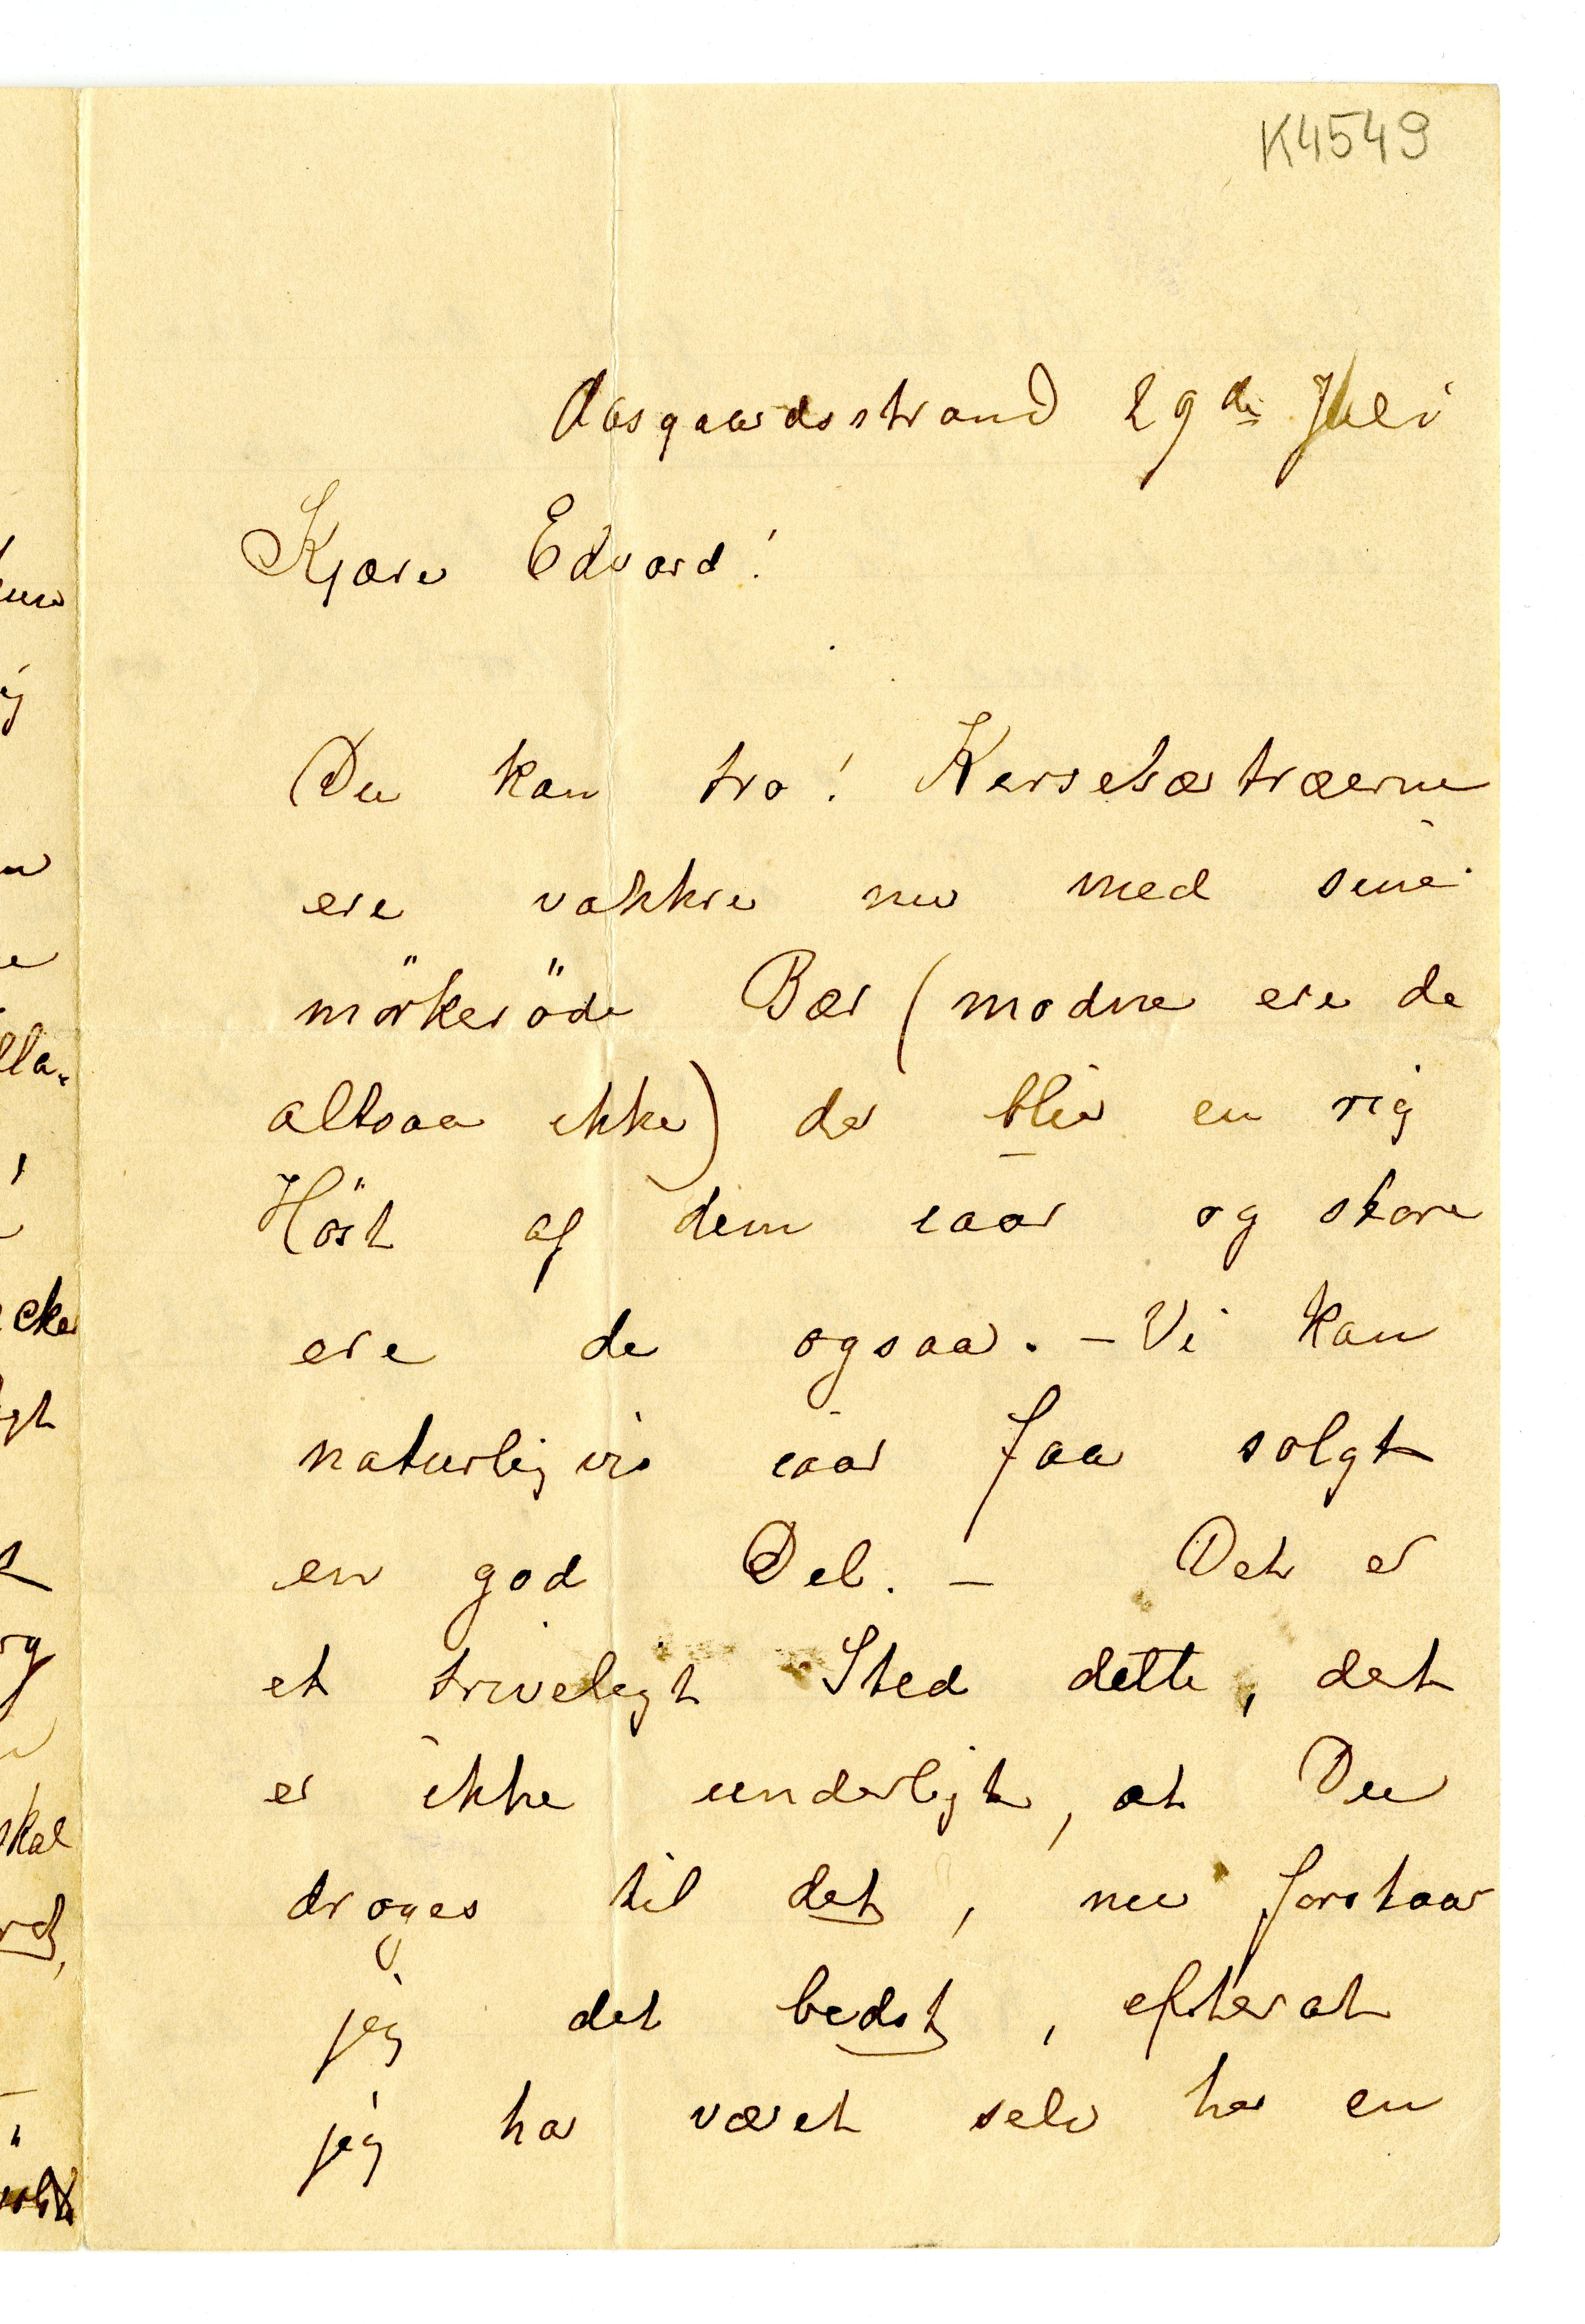 K4549
Aasgaardsstrand 29de Juli
Kjære Edvard!
Du kan tro! Kersebærtræerne
ere vakkre nu med sine
mörkeröde Bær (modne ere de
altsaa ikke) der bliver en rig
Höst af dem iaar og store
ere de ogsaa. – Vi kan
naturligvis iaar faa solgt
en god Del. – Det er
et triveligt Sted dette, det
er ikke underligt, at Du
droges til det, nu forstaar
jeg det bedst, efterat
jeg har været selv her en